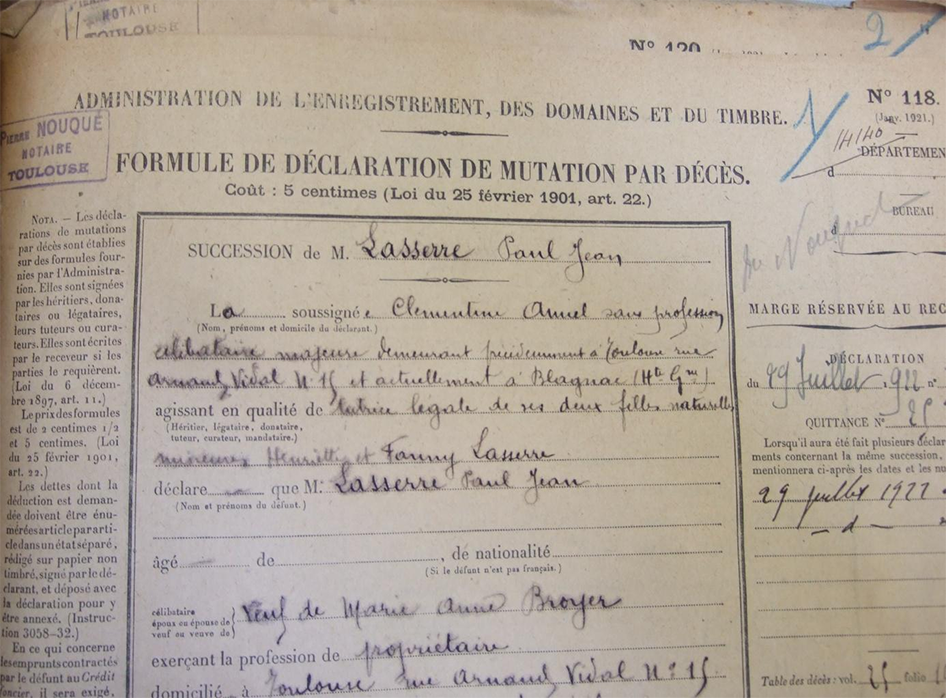 NOTAIRE
TOULOUSE
N° 120
2
ADMINISTRATION DE L'ENREGISTREMENT, DES DOMAINES ET DU TIMBRE.
N° 118.
(Janv. 1921.)
1/
14140
DÉPARTEMENT
d
PIERRE NOUQUÉ
NOTAIRE
TOULOUSE
FORMULE DE DÉCLARATION DE MUTATION PAR DÉCÈS.
Coût : 5 centimes (Loi du 25 février 1901, art. 22.)
BUREAU
d
NOTA. — Les décla-
rations de mutations
par décès sont établies
sur des formules four-
nies par l'Administra-
tion. Elles sont signées
par les héritiers, dona-
taires ou légataires,
leurs tuteurs ou cura-
teurs. Elles sont écrites
par le receveur si les
parties le requièrent.
(Loi du 6 décem-
bre 1897, art. 11.)
Le prix des formules
est de 2 centimes 1/2
et 5 centimes. (Loi
du 25 février 1901,
art. 22.)
Les dettes dont la
déduction est deman-
dée doivent être énu-
mérées article par arti-
cle dans un état séparé,
rédigé sur papier non
timbré, signé par le dé-
clarant, et déposé avec
la déclaration pour y
être annexé. (Instruc-
tion 3058-32.)
En ce qui concerne
les emprunts contractés
par le défunt au Crédit
foncier, il sera exigé,
SUCCESSION de M. Lasserre Paul Jean
La soussignée Clementine Anniel sans profession
(Nom, prénoms et domicile du déclarant.)
célibataire majeure demeurant précédemment à Toulouse rue
Arnaud Vidal N° 15 et actuellement à Blagnac (Hte Gne)
agissant en qualité de tutrice légale de ses deux filles naturelles
(Héritier, légataire, donataire,
tuteur, curateur, mandataire.)
mineures Henriette et Fanny Lasserre
déclare que M. Lasserre Paul Jean
(Nom et prénoms du défunt.)
âgé de , de nationalité
(Si le défunt n'est pas français.)
célibataire
époux ou épouse de
veuf ou veuve de
Veuf de Marie Anne Broyer
exerçant la profession de propriétaire
domicilié à Toulouse rue Arnaud Vidal N° 15
MARGE RÉSERVÉE AU REC
DÉCLARATION
du 29 Juillet 1922 n°
QUITTANCE N° 25
Lorsqu'il aura été fait plusieurs déclar
ments concernant la même succession,
mentionnera ci-après les dates et les nu
29 juillet 1922
— d —
Table des décès : vol. 25 folio